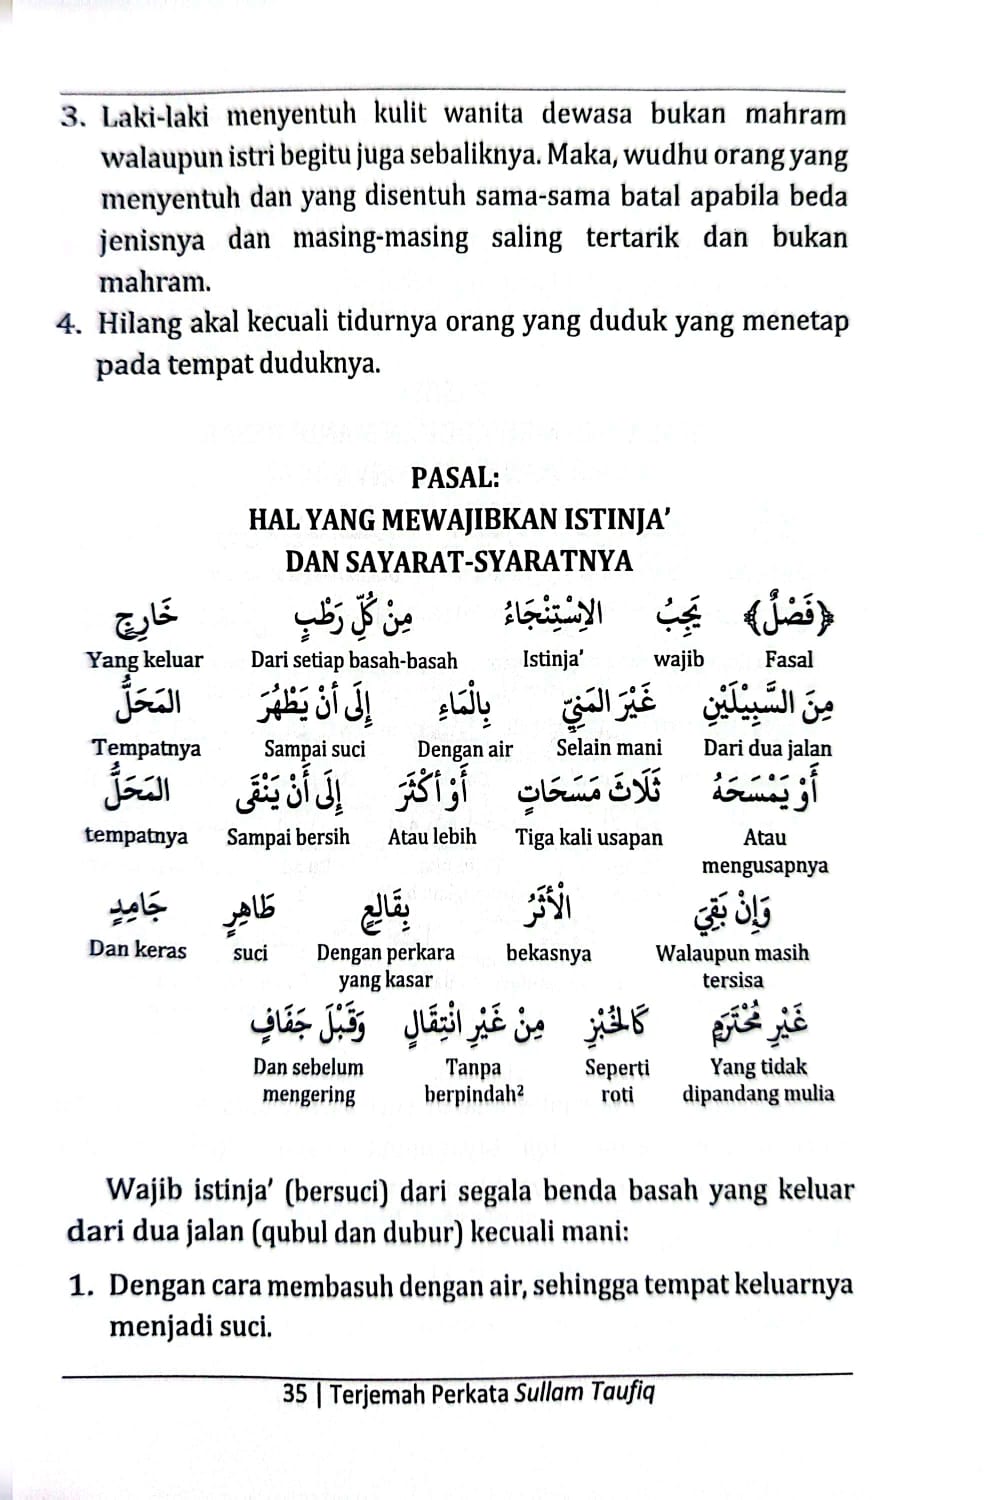 3. Laki-laki menyentuh kulit wanita dewasa bukan mahram
walaupun istri begitu juga sebaliknya. Maka, wudhu orang yang
menyentuh dan yang disentuh sama-sama batal apabila beda
jenisnya dan masing-masing saling tertarik dan bukan
mahram.
4. Hilang akal kecuali tidurnya orang yang duduk yang menetap
pada tempat duduknya.
PASAL:
HAL YANG MEWAJIBKAN ISTINJA’
DAN SAYARAT-SYARATNYA
﴿فَصْلٌ﴾ يَجِبُ الاِسْتِنْجَاءُ مِنْ كُلِّ رَطْبٍ خَارِجٍ
Yang keluar Dari setiap basah-basah Istinja’ wajib Fasal
مِنَ السَّبِيْلَيْنِ غَيْرَ المَنِيِّ بِالْمَاءِ إِلَى أَنْ يَطْهُرَ المَحَلُّ
Tempatnya Sampai suci Dengan air Selain mani Dari dua jalan
أَوْ يَمْسَحَهُ ثَلَاثَ مَسَحَاتٍ أَوْ أَكْثَرَ إِلَى أَنْ يَنْقَى المَحَلُّ
tempatnya Sampai bersih Atau lebih Tiga kali usapan Atau
mengusapnya
وَإِنْ بَقِيَ الْأَثَرُ بِقَالِعٍ طَاهِرٍ جَامِدٍ
Dan keras suci Dengan perkara bekasnya Walaupun masih
yang kasar tersisa
غَيْرِ مُحْتَرَمٍ كَالخُبْزِ مِنْ غَيْرِ انْتِقَالٍ وَقَبْلَ جَفَافٍ
Dan sebelum Tanpa Seperti Yang tidak
mengering berpindah² roti dipandang mulia
Wajib istinja’ (bersuci) dari segala benda basah yang keluar
dari dua jalan (qubul dan dubur) kecuali mani:
1. Dengan cara membasuh dengan air, sehingga tempat keluarnya
menjadi suci.
35 | Terjemah Perkata Sullam Taufiq